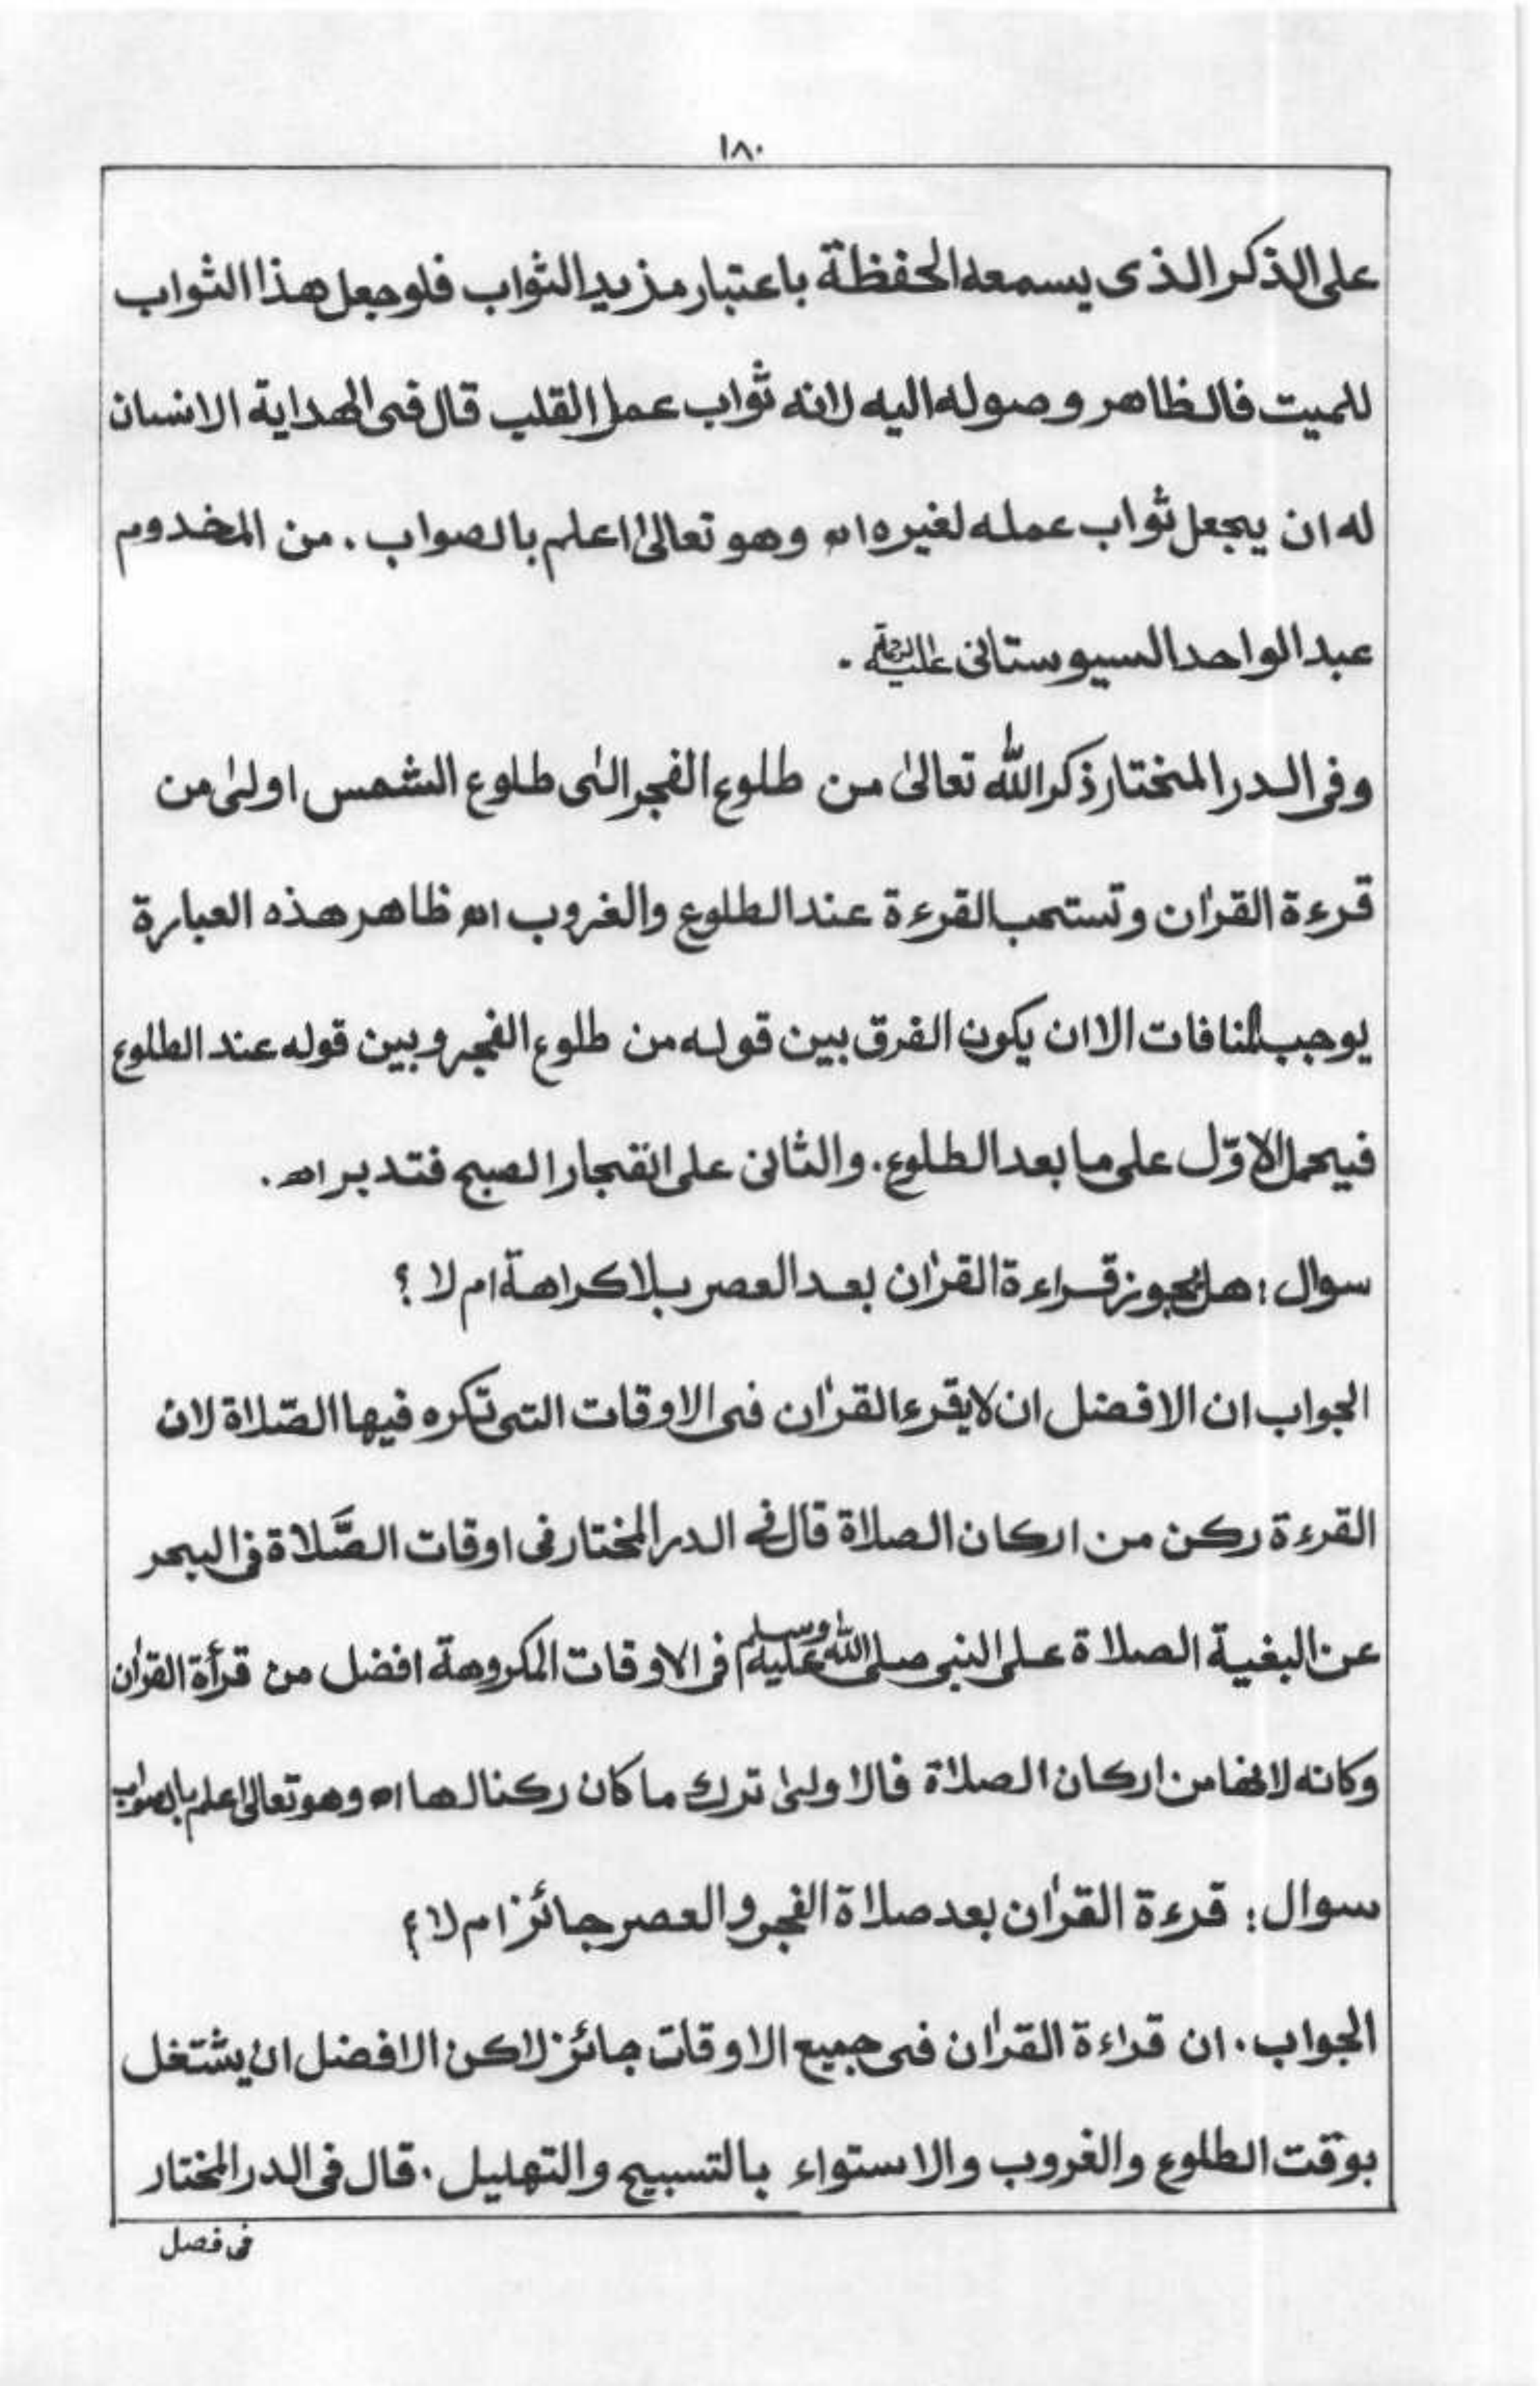 ١٨٠
على الذكر الذى يسمعه الحفظة باعتبار مزيد الثواب فلو جعل هذا الثواب
للميت فالظاهر وصوله اليه لانه ثواب عمل القلب قال فى الهداية الانسان
له ان يجعل ثواب عمله لغيره اه وهو تعالىٰ اعلم بالصواب . من المخدوم
عبد الواحد السيوستانى عليه الرحمة .
وفى الدر المختار ذكر الله تعالىٰ من طلوع الفجر الىٰ طلوع الشمس اولىٰ من
قرءة القرٰان وتستحب القرءة عند الطلوع والغروب اه ظاهر هذه العبارة
يوجب المنافات الا ان يكون الفرق بين قوله من طلوع الفجر وبين قوله عند الطلوع
فيحمل الاوّل على ما بعد الطلوع . والثانى على انفجار الصبح فتدبر اه .
سوال : هل يجوز قراءة القرٰان بعد العصر بلا كراهة ام لا ؟
الجواب ان الافضل ان لا يقرء القرٰان فى الاوقات التى تكره فيها الصّلاة لان
القرءة ركن من اركان الصلاة قال فى الدر المختار فى اوقات الصَّلاة فى البحر
عن البغية الصلاة على النبى صلى الله عليه وسلم فى الاوقات المكروهة افضل من قرأة القرٰان
وكانه لانها من اركان الصلاة فالاولىٰ ترك ما كان ركنا لها اه وهو تعالىٰ اعلم بالصواب
سوال : قرءة القرٰان بعد صلاة الفجر والعصر جائز ام لا ؟
الجواب . ان قراءة القرٰان فى جميع الاوقات جائز لاكن الافضل ان يشتغل
بوقت الطلوع والغروب والاستواء بالتسبيح والتهليل . قال فى الدر المختار
فى فصل